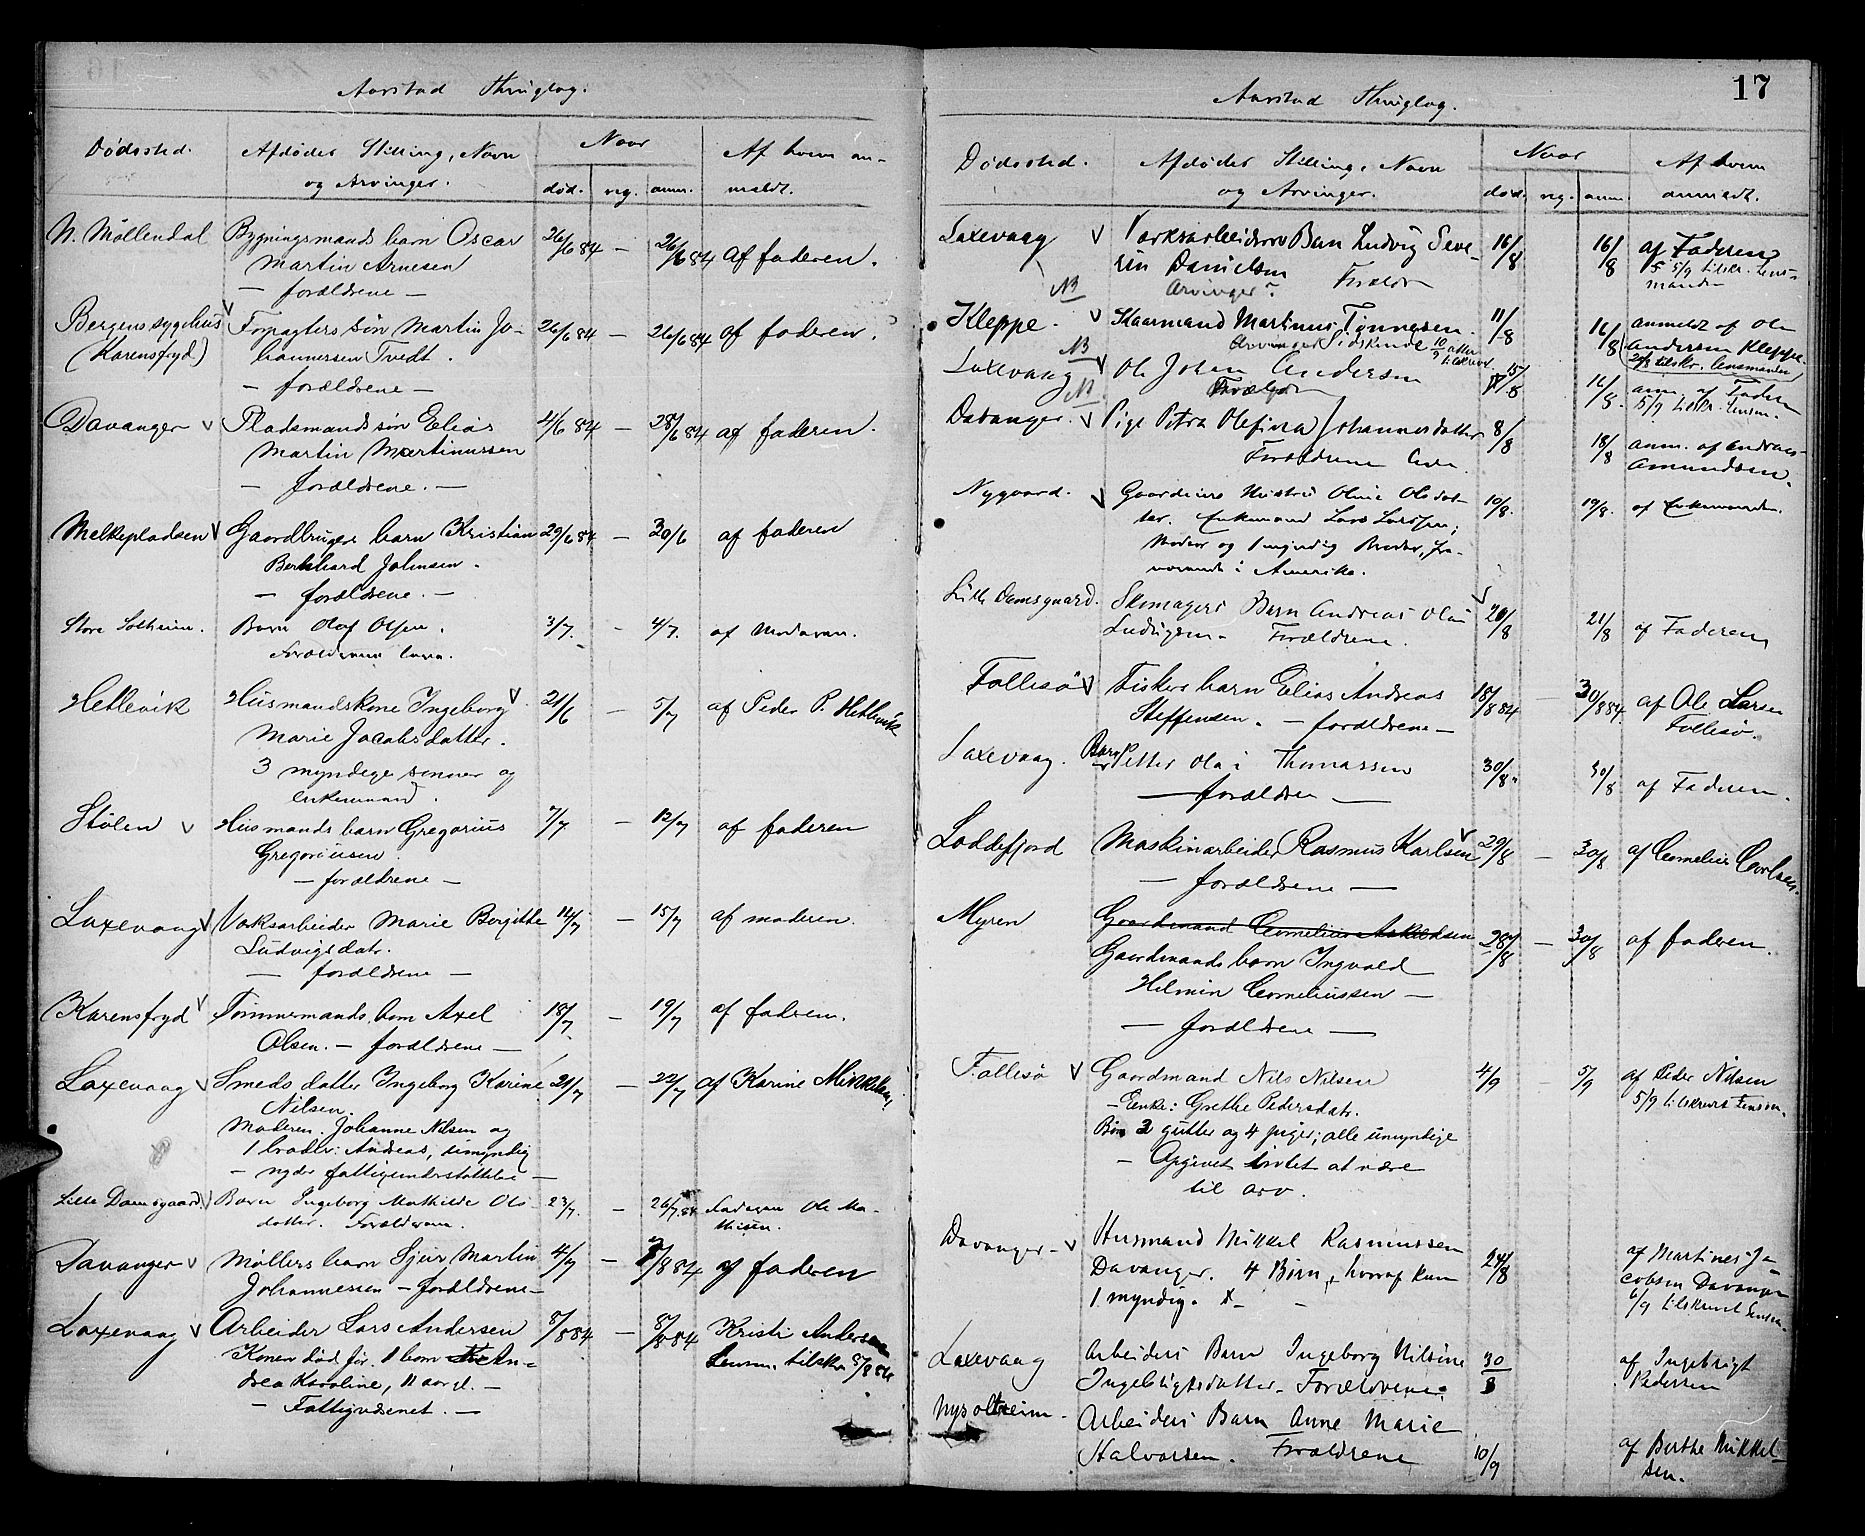 Aarstad Thinglag.
Dødssted.
Afdødes Stilling, Navn
og Arvinger.
Naar
død. reg. anm.
Af hvem an-
meldt.
N. Møllendal Bygningsmands barn Oscar 26/6 84 — 26/6 84 af faderen.
Martin Arnesen
— forældrene —
Bergens sygehus Forpagters søn Martin Jo- 26/6 84 — 26/6 84 af faderen.
(Karensfryd) hannessen Tvedt.
— forældrene —
Davanger Pladsmands søn Elias 4/6 84 — 28/6 84 af faderen.
Martin Martinussen
— forældrene. —
Melkepladsen Gaardbrugers barn Kristian 29/6 84 — 30/6 af faderen
Bernhard Johnsen.
— forældrene. —
Store Solheim. Barn Olaf Olsen. 3/7 — 4/7. af Moderen.
Forældrene
Hetlevik Husmandskone Ingeborg 21/6 — 5/7 af Peder P. Hetlevik
Marie Jacobsdatter.
3 myndige sønner og
enkemand.
Stølen Husmands barn Gregorius 7/7 — 12/7 af faderen
Gregoriussen.
— forældrene —
Laxevaag Værksarbeider Marie Bergitte 14/7 — 15/7 af moderen.
Ludvigsdatr.
— forældrene —
Karensfryd Tømmermands barn Axel 18/7 — 19/7 af faderen.
Olsen. — forældrene —
Laxevaag Smeds datter Ingeborg Karine 21/7 — 22/7 af Karine Mikkelsen
Nilsen.
Moderen Johanne Nilsen og
1 broder: Andreas, umyndig
— nyder fattigunderstøttelse —
Lille Damsgaard. Barn Ingeborg Mathilde Ols- 23/7. — 26/7 84 Faderen Ole Ma-
datter. Forældrene. thisen.
Davanger Møllers barn Sjur Martin 4/7 — /8 84 af faderen
Johannessen — forældrene —
Laxevaag Arbeider Lars Andersen 8/8 84 — 8/8 84 Kristi Andersen
Konen død før. 1 barn An- Lensm. tilskr. 8/8 84
drea Karoline, 11 aar gl. —
— Fattigvæsenet. —
17
Aarstad Thinglag.
Dødssted.
Afdødes Stilling, Navn
og Arvinger.
Naar
død. reg. anm.
Af hvem
anmeldt.
Laxevaag Værksarbeiders Barn Ludvig Seve- 16/8 16/8 af Faderen
rin Danielsen 5/9 tilskr. Lens-
NB Arvinger? Forældre manden
Kleppe. Skaarmand Martinus Tønnesen. 11/8 16/8 anmeldt af Ole
Arvinger Sødskende 10/9 atter tilskrevet Andersen Kleppe.
NB tilskr. lensmanden
Laxevaag Ole Johan Andersen 15/8 16/8. anm. af Faderen
NB Forældre 15/9 tilskr. Lensm.
Davanger. Pige Petra Olefina Johannesdatter 8/8 18/8 anm. af Andreas
Forældrene leve. Amundsen.
Nygaard. Gaardeiers Hustru Oline Olsdat- 10/8. 19/8. af Enkemanden.
ter. Enkemand Lars Larssen;
Moder og 1 myndig Broder, fra-
værende i Amerika.
Lille Damsgaard. Skomagers Barn Andreas Olai 20/8 21/8 af Faderen
Ludvigsen. Forældrene.
Follesø Fiskers barn Elias Andreas 18/8 84 — 30/8 84 af Ole Larsen
Steffensen. — forældrene — Follesø.
Laxevaag. Barn Petter Olai Thomassen 30/8. 30/8 af Faderen.
— forældre —
Loddefjord Maskinarbeider Rasmus Karlsen 29/8 — 30/8 af Cornelius Carlsen.
— forældrene —
Myren Gaardmand Cornelius Askildsen
Gaardmands barn Ingvald 28/8 — 30/8 af faderen.
Helmin Corneliussen —
— forældrene —
Follesø Gaardmand Nils Nilsen 4/9 — 5/9 af Peder Nilsen
— Enke: Grethe Pedersdatr. 5/9 tilskrevet Lensm.
Børn 2 gutter og 4 piger; alle umyndige
— Opgivet intet at være
til arv.
Davanger — Husmand Mikkel Rasmussen 24/8 af Martines Ja-
Davanger. 4 Børn, hvoraf kun cobsen Davanger
1 myndig. 6/9 tilskrevet Lensm.
Laxevaag Arbeiders Barn Ingeborg Nilsine 30/8 af Ingebrigt
Ingebrigtsdatter. Forældrene. Pedersen
Nysolheim. Arbeiders Barn Anne Marie
Halvorsen. Forældrene 10/9 af Berthe Mikkel-
sen.